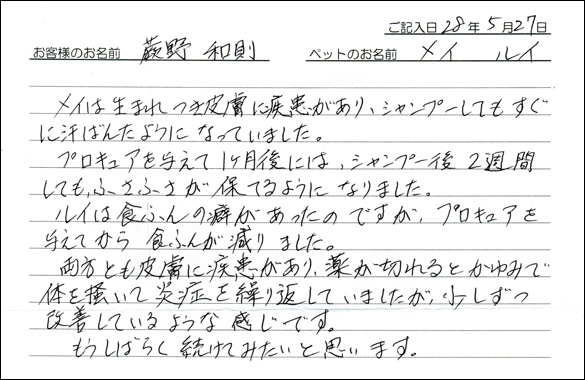 ご記入日 28年 5月27日
お客様のお名前 蕨野 和則 ペットのお名前 メイ ルイ
メイは生まれつき皮膚に疾患があり、シャンプーしてもすぐ
に汗ばんだようになっていました。
プロキュアを与えて1ヶ月後には、シャンプー後 2週間
しても、ふさふさが保てるようになりました。
ルイは食ふんの癖があったのですが、プロキュアを
与えてから食ふんが減りました。
両方とも皮膚に疾患があり、薬が切れるとかゆみで
体を掻いて炎症を繰り返していましたが、少しずつ
改善しているような感じです。
もうしばらく続けてみたいと思います。